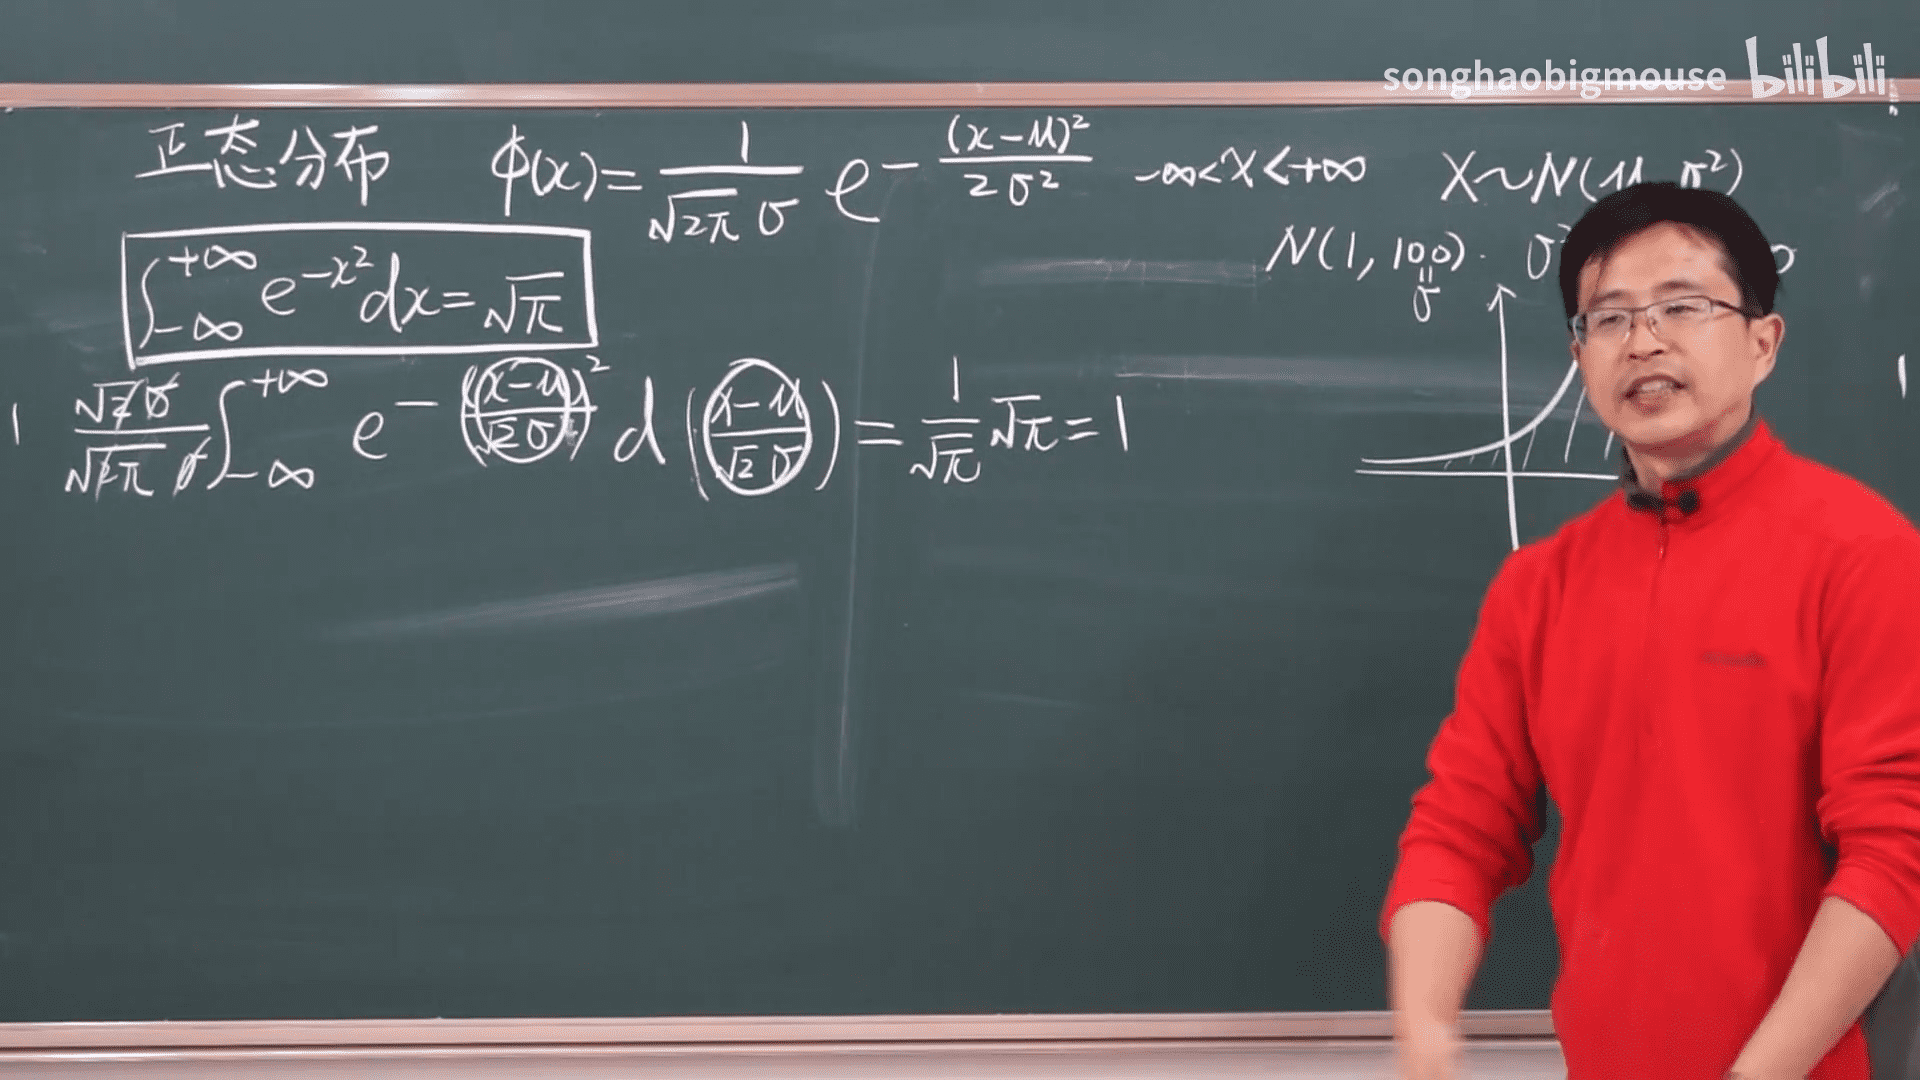 songhaobigmouse bilibili
正态分布 φ(x)=1/(√2π σ) e^-(x-μ)²/(2σ²) -∞<x<+∞ X~N(μ, σ²)
N(1, 100). σ²
σ
∫_-∞^+∞ e^-x² dx=√π
1 (√2 σ)/(√2π σ) ∫_-∞^+∞ e^-((x-μ)/(√2 σ))² d((x-μ)/(√2 σ)) = 1/√π √π=1